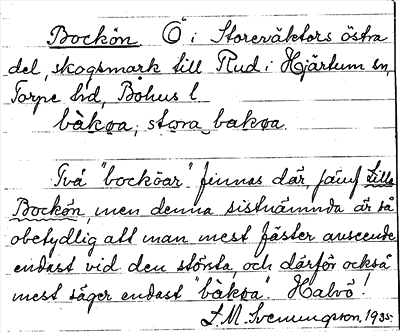 Bockön. Ö i Storeväktors östra
del, skogsmark till Rud i Hjärtum sn,
Torpe hd, Bohus l.
bàkøa; stora bakøa.
Två "bocköar" finnas där, jämf Lilla
Bockön, men denna sistnämnda är så
obetydlig att man mest fäster avseende
endast vid den största, och därför också
mest säger endast "bàkøa". Halvö!
L. M. Svenungsson. 1935.